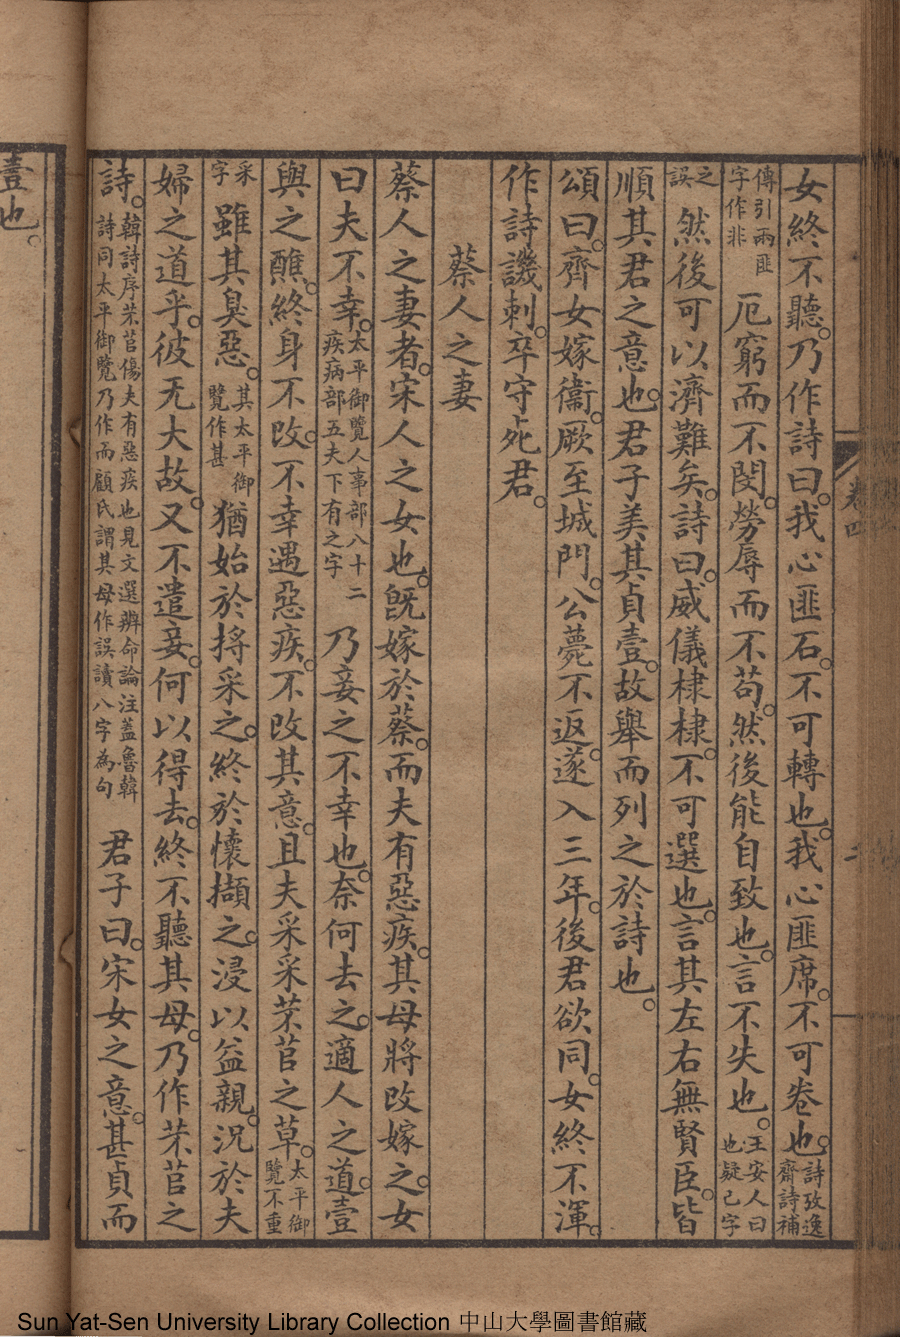 女終不聽。乃作詩曰。我心匪石。不可轉也。我心匪席。不可卷也。詩攷逸齊詩補
傳引兩匪字作非厄窮而不閔。勞辱而不苟。然後能自致也。言不失也。王安人曰也疑己字
之誤然後可以濟難矣。詩曰。威儀棣棣。不可選也。言其左右無賢臣。皆
順其君之意也。君子美其貞壹。故舉而列之於詩也。
頌曰。齊女嫁衞。厥至城門。公薨不返。遂入三年。後君欲同。女終不渾。
作詩譏刺。卒守死君。
蔡人之妻
蔡人之妻者。宋人之女也。旣嫁於蔡。而夫有惡疾。其母將改嫁之。女
曰夫不幸。太平御覽人事部八十二疾病部五夫下有之字乃妾之不幸也。奈何去之。適人之道。壹
與之醮。終身不改。不幸遇惡疾。不改其意。且夫采采芣苢之草。太平御覽不重
采字雖其臭惡。其太平御覽作甚猶始於捋采之。終於懷擷之。浸以益親。况於夫
婦之道乎。彼无大故。又不遣妾。何以得去。終不聽其母。乃作芣苢之
詩。韓詩序芣苢傷夫有惡疾也見文選辨命論注蓋魯韓詩同太平御覽乃作而顧氏謂其母作誤讀八字為句君子曰。宋女之意。甚貞而
壹也。
卷四
二
Sun Yat-Sen University Library Collection 中山大學圖書館藏